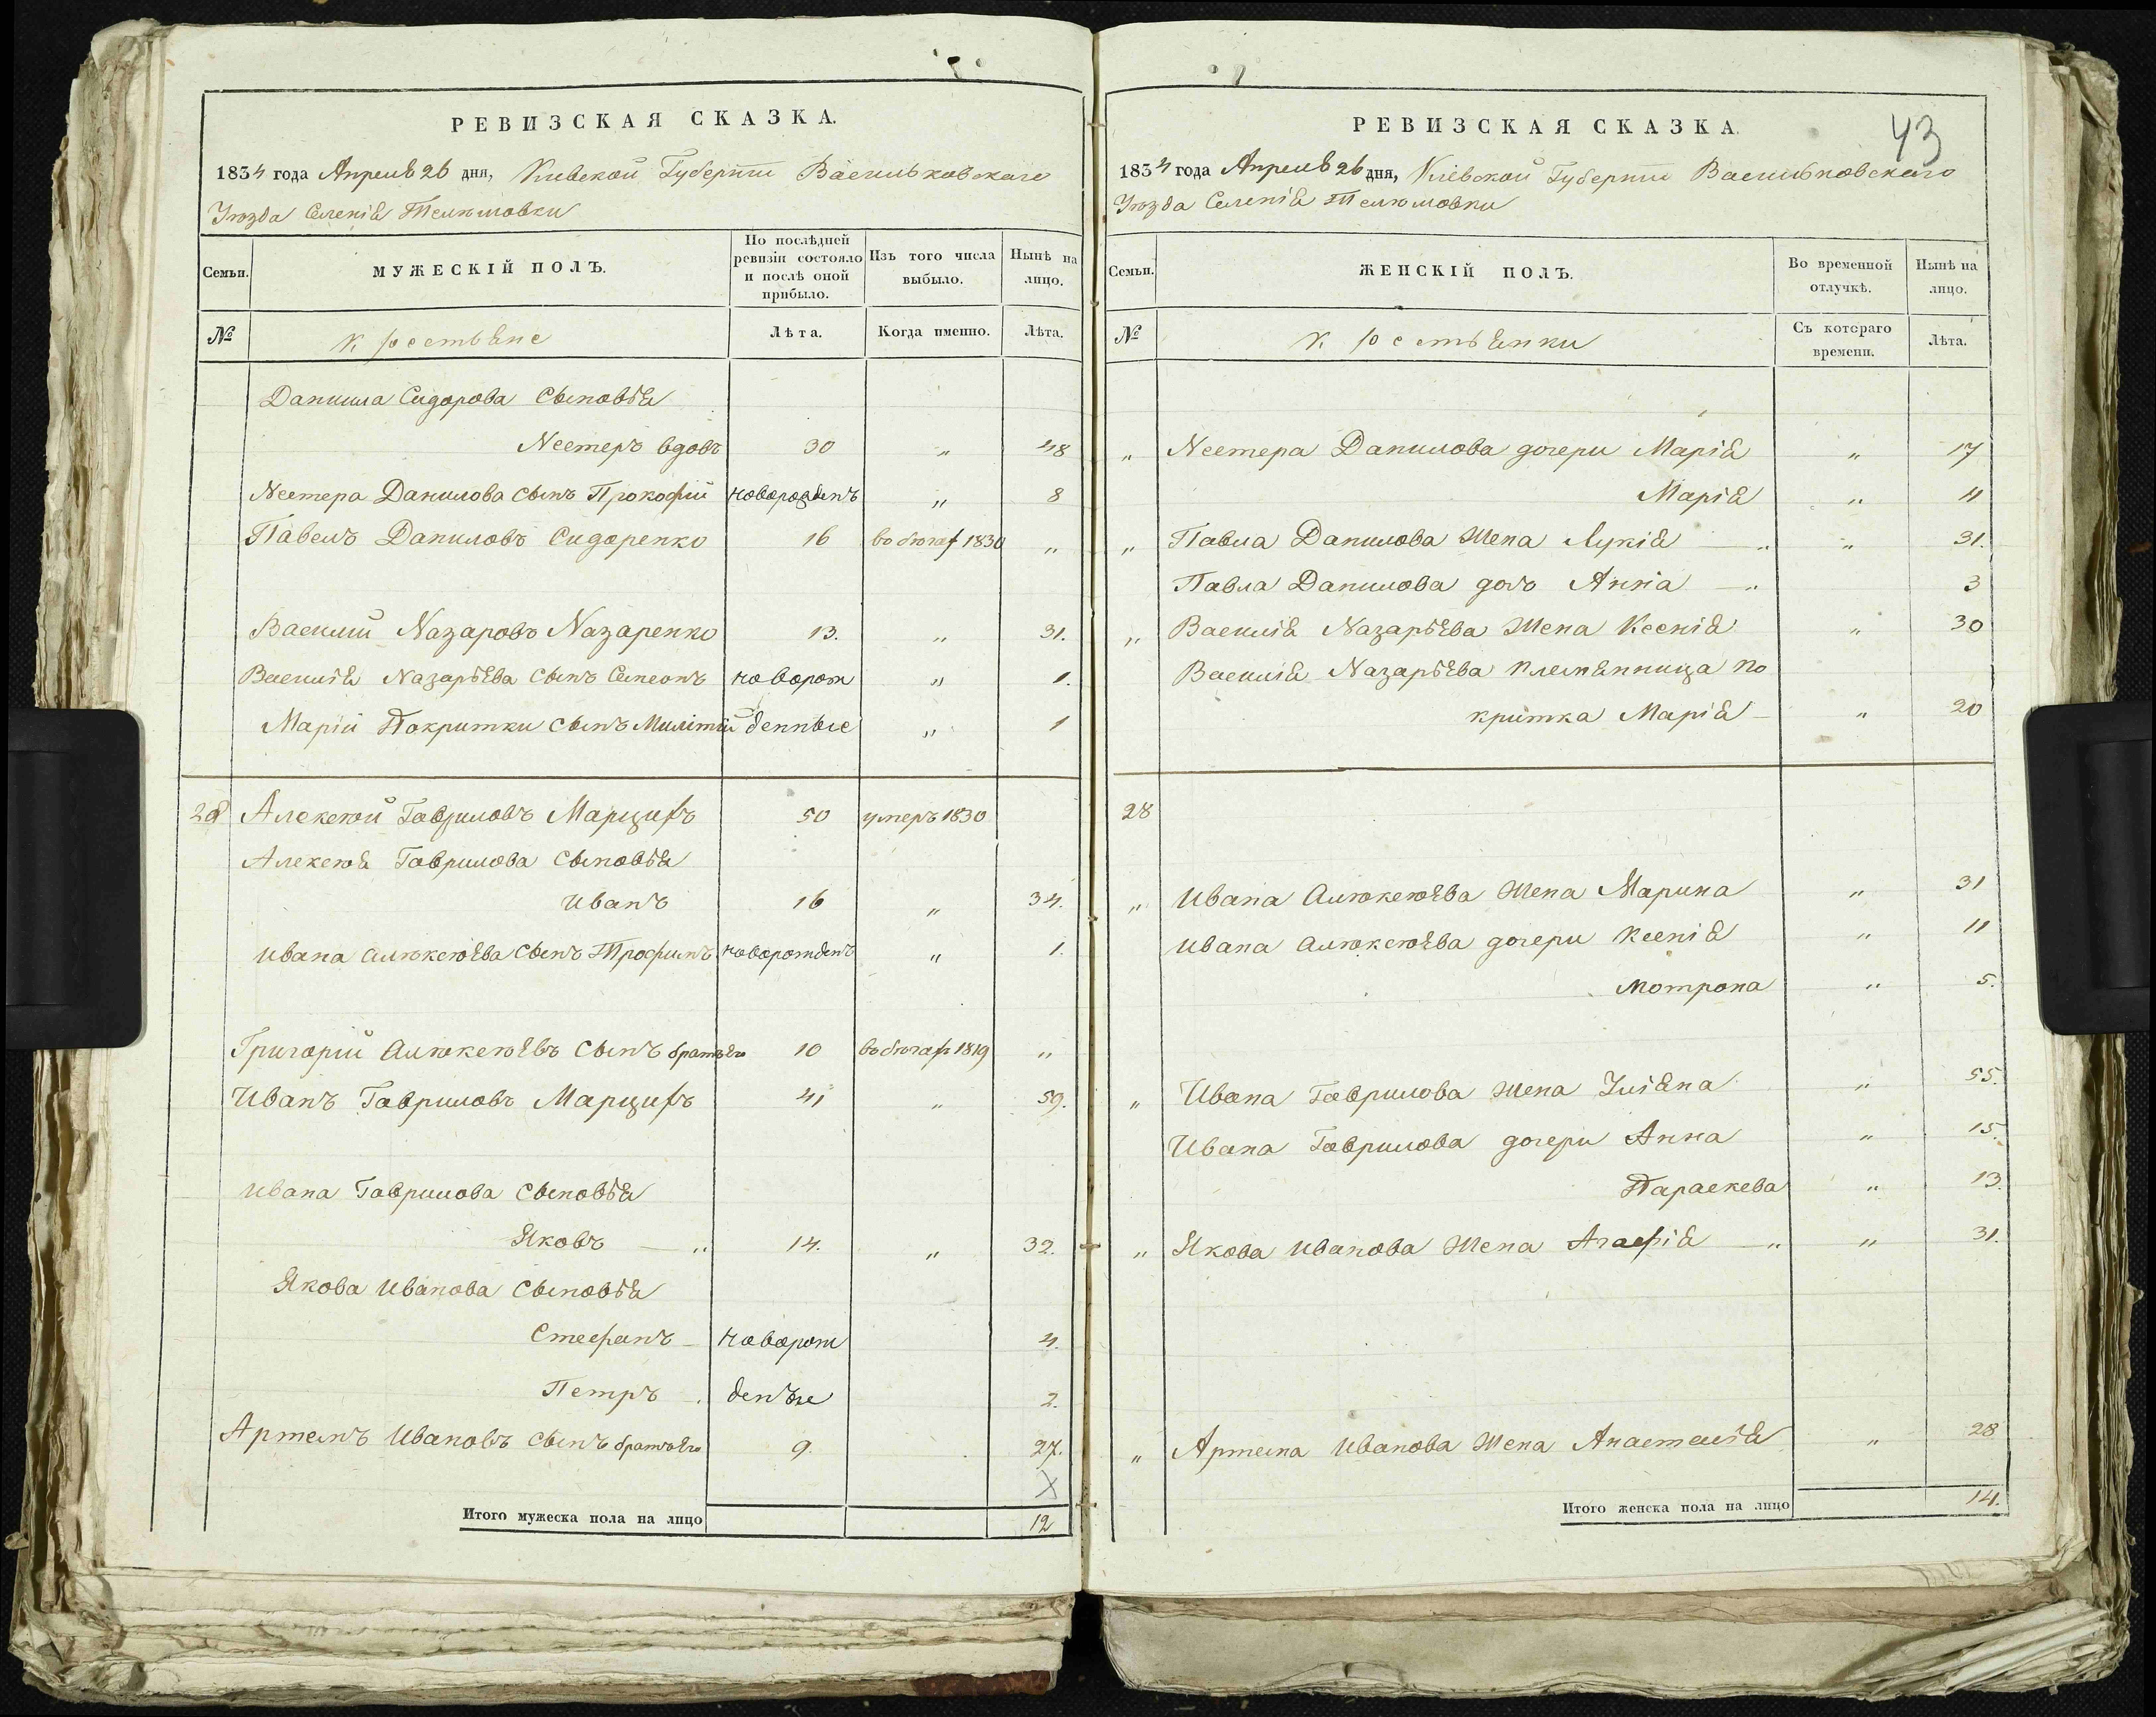 РЕВИЗСКАЯ СКАЗКА.
1834 года Апреля 26 дня, Киевской Губернии Васильковского
Уезда Селения
МУЖЕСКІЙ ПОЛЪ.
Семьи.
По послѣдней ревизіи состояло и послѣ оной прибыло.
Изъ того числа выбыло.
Нынѣ на лицо.
№
Крестьяне
Лѣта.
Когда именно.
Лѣта.
Данила Сидорова Сыновья
Нестеръ вдовъ 30 „ 48
Нестера Данилова сынъ Прокофій новорожденъ „ 8
Павелъ Даниловъ Сидоренко 16 1830 „
Василий Назаровъ Назаренко 13. „ 31.
Василія Назарьева Сынъ Симеонъ новорож „ 1.
Маріи Покритки Сынъ денные „ 1
28 Алексей Гавриловъ 50 умеръ 1830
Алексея Гаврилова Сыновья
Иванъ 16 „ 34.
Ивана Алексеева Сынъ Трофимъ новорожденъ „ 1.
Григорій Алексеевъ Сынъ братъ его 10 1819 „
Иванъ Гавриловъ 41 „ 59.
Ивана Гаврилова Сыновья
Яковъ „ 14. „ 32.
Якова Иванова Сыновья
Стефанъ новорож 4.
Петръ денъые 2.
Артемъ Ивановъ Сынъ братъ его 9. 27.
X
Итого мужеска пола на лицо 12
РЕВИЗСКАЯ СКАЗКА.
43
1834 года Апреля 26 дня, Кіевской Губернии Васильковского
Уезда Селенія
Семьи.
ЖЕНСКІЙ ПОЛЪ.
Во временной отлучкѣ.
Нынѣ на лицо.
№
Крестьянки
Съ котораго времени.
Лѣта.
„ Нестера Данилова дочери Марія „ 17
Марія „ 11
„ Павла Данилова Жена Лукія „ „ 31.
Павла Данилова дочь Анна „ 3
„ Василія Назарьева Жена Ксенія „ 30
Василія Назарьева племянница По
критка Марія „ 20
28
„ Ивана Алексеева Жена Марина „ 31
Ивана Алексеева дочери Ксенія „ 11
Мотрона „ 5.
„ Ивана Гаврилова Жена Уліяна „ 55.
Ивана Гаврилова дочери Анна „ 15.
Параскева „ 13.
„ Якова Иванова Жена Агафія „ „ 31.
„ Артема Иванова Жена Анастасія „ 28
Итого женска пола на лицо 14.